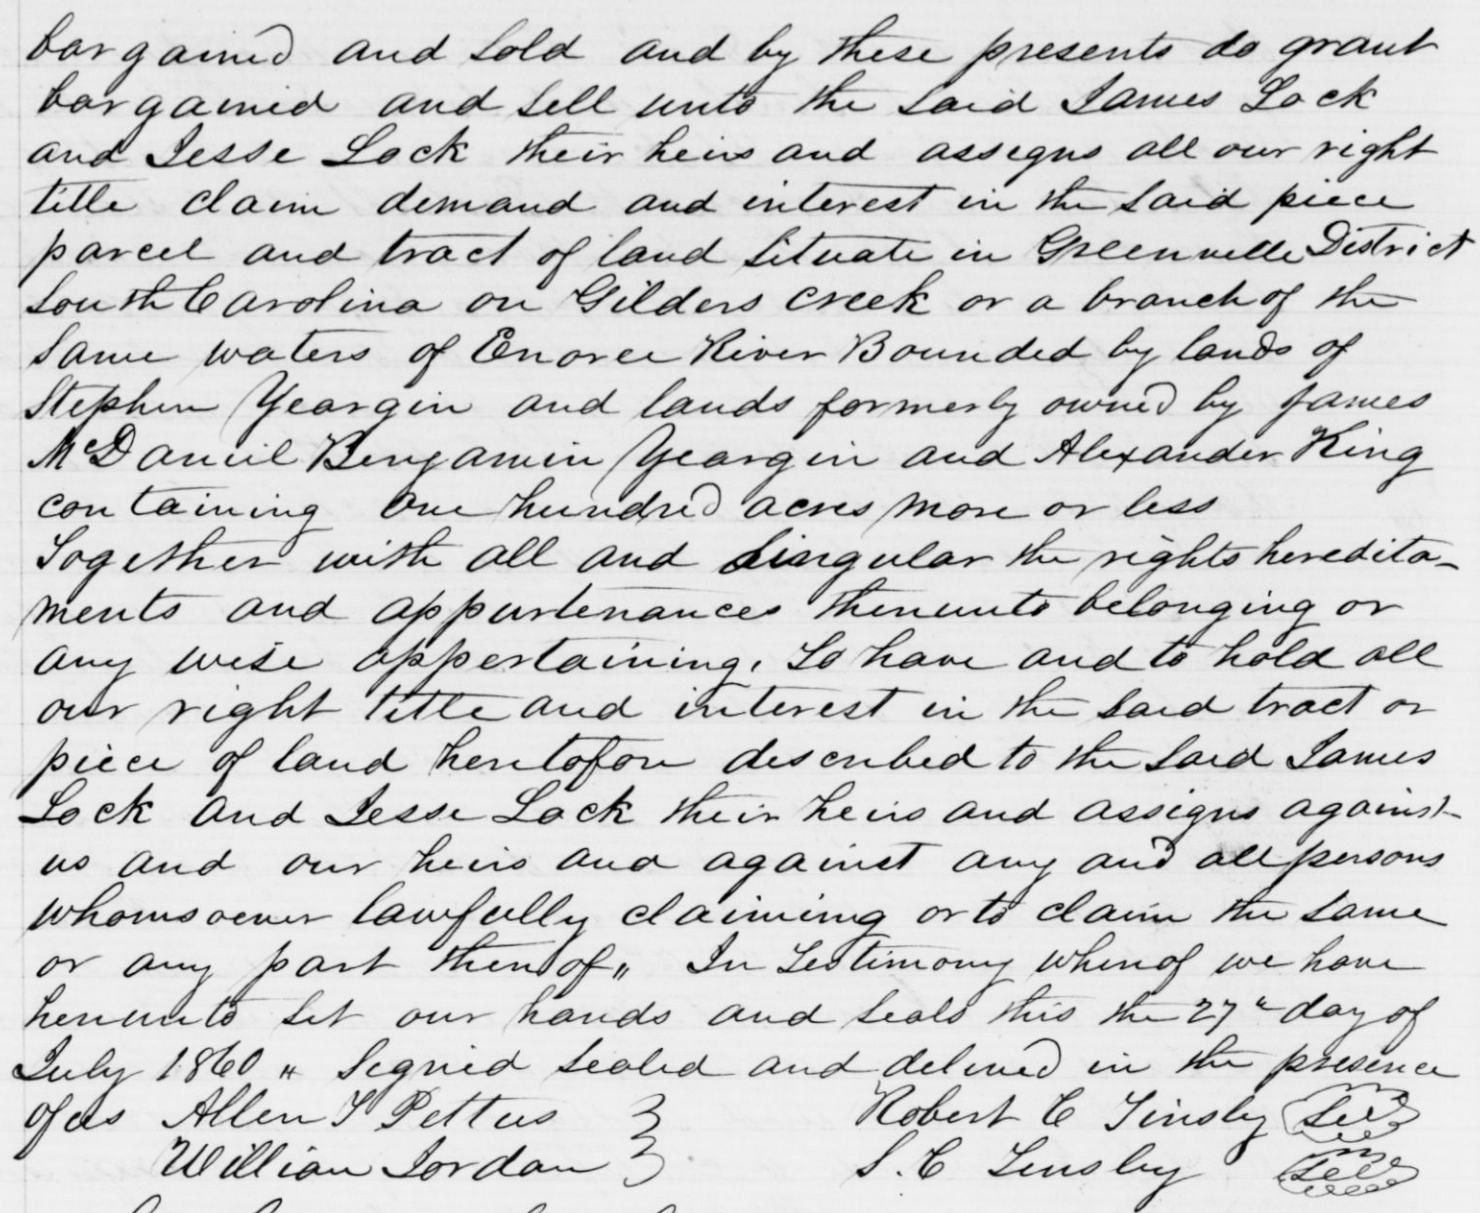 bargained and sold and by these presents do grant
bargained and sell unto the said James Lock
and Jesse Lock their heirs and assigns all our right
title claim demand and interest in the said piece
parcel and tract of land situate in Greenville District
South Carolina on Gilders creek or a branch of the
same waters of Enoree River Bounded by lands of
Stephen Yeargin and lands formerly owned by James
McDaniel Benjamin Yeargin and Alexander King
containing one hundred acres more or less
Together with all and singular the rights heredita-
ments and appurtenances thereunto belonging or
any wise appertaining. To have and to hold all
our right title and interest in the said tract or
piece of land heretofore described to the said James
Lock and Jesse Lock their heirs and assigns against
us and our heirs and against any and all persons
whomsoever lawfully claiming or to claim the same
or any part thereof „ In Testimony whereof we have
hereunto set our hands and seals this the 27" day of
July 1860 „ Signed sealed and delivered in the presence
of us Allen T Pettus } Robert C Tinsly Seal
William Jordan } S. C Tinsley Seal